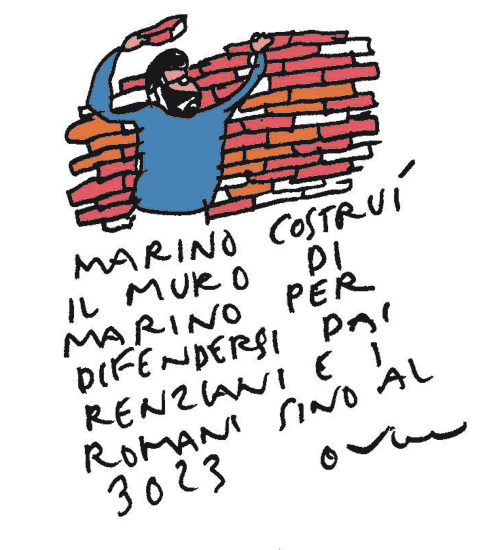 MARINO COSTRUÍ
IL MURO DI
MARINO PER
DIFENDERSI DAI
RENZIANI E I
ROMANI SINO AL
3023